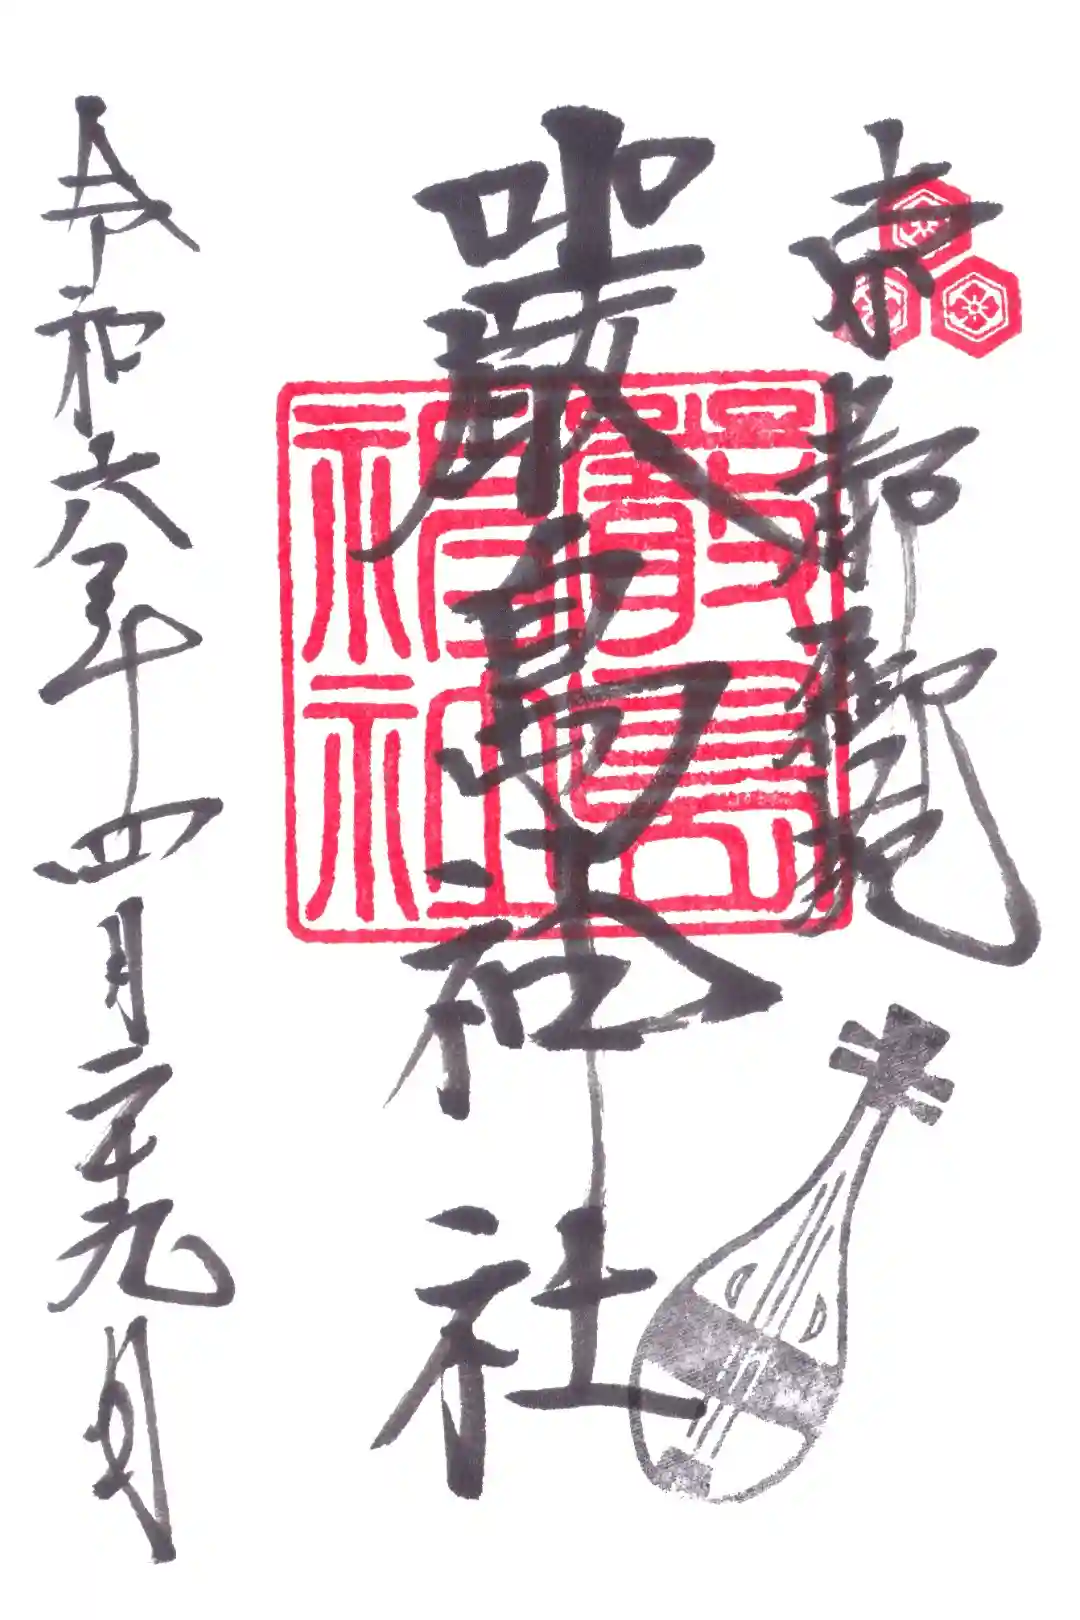 京都御苑
嚴島神社
令和六年四月二十九日
嚴島神社